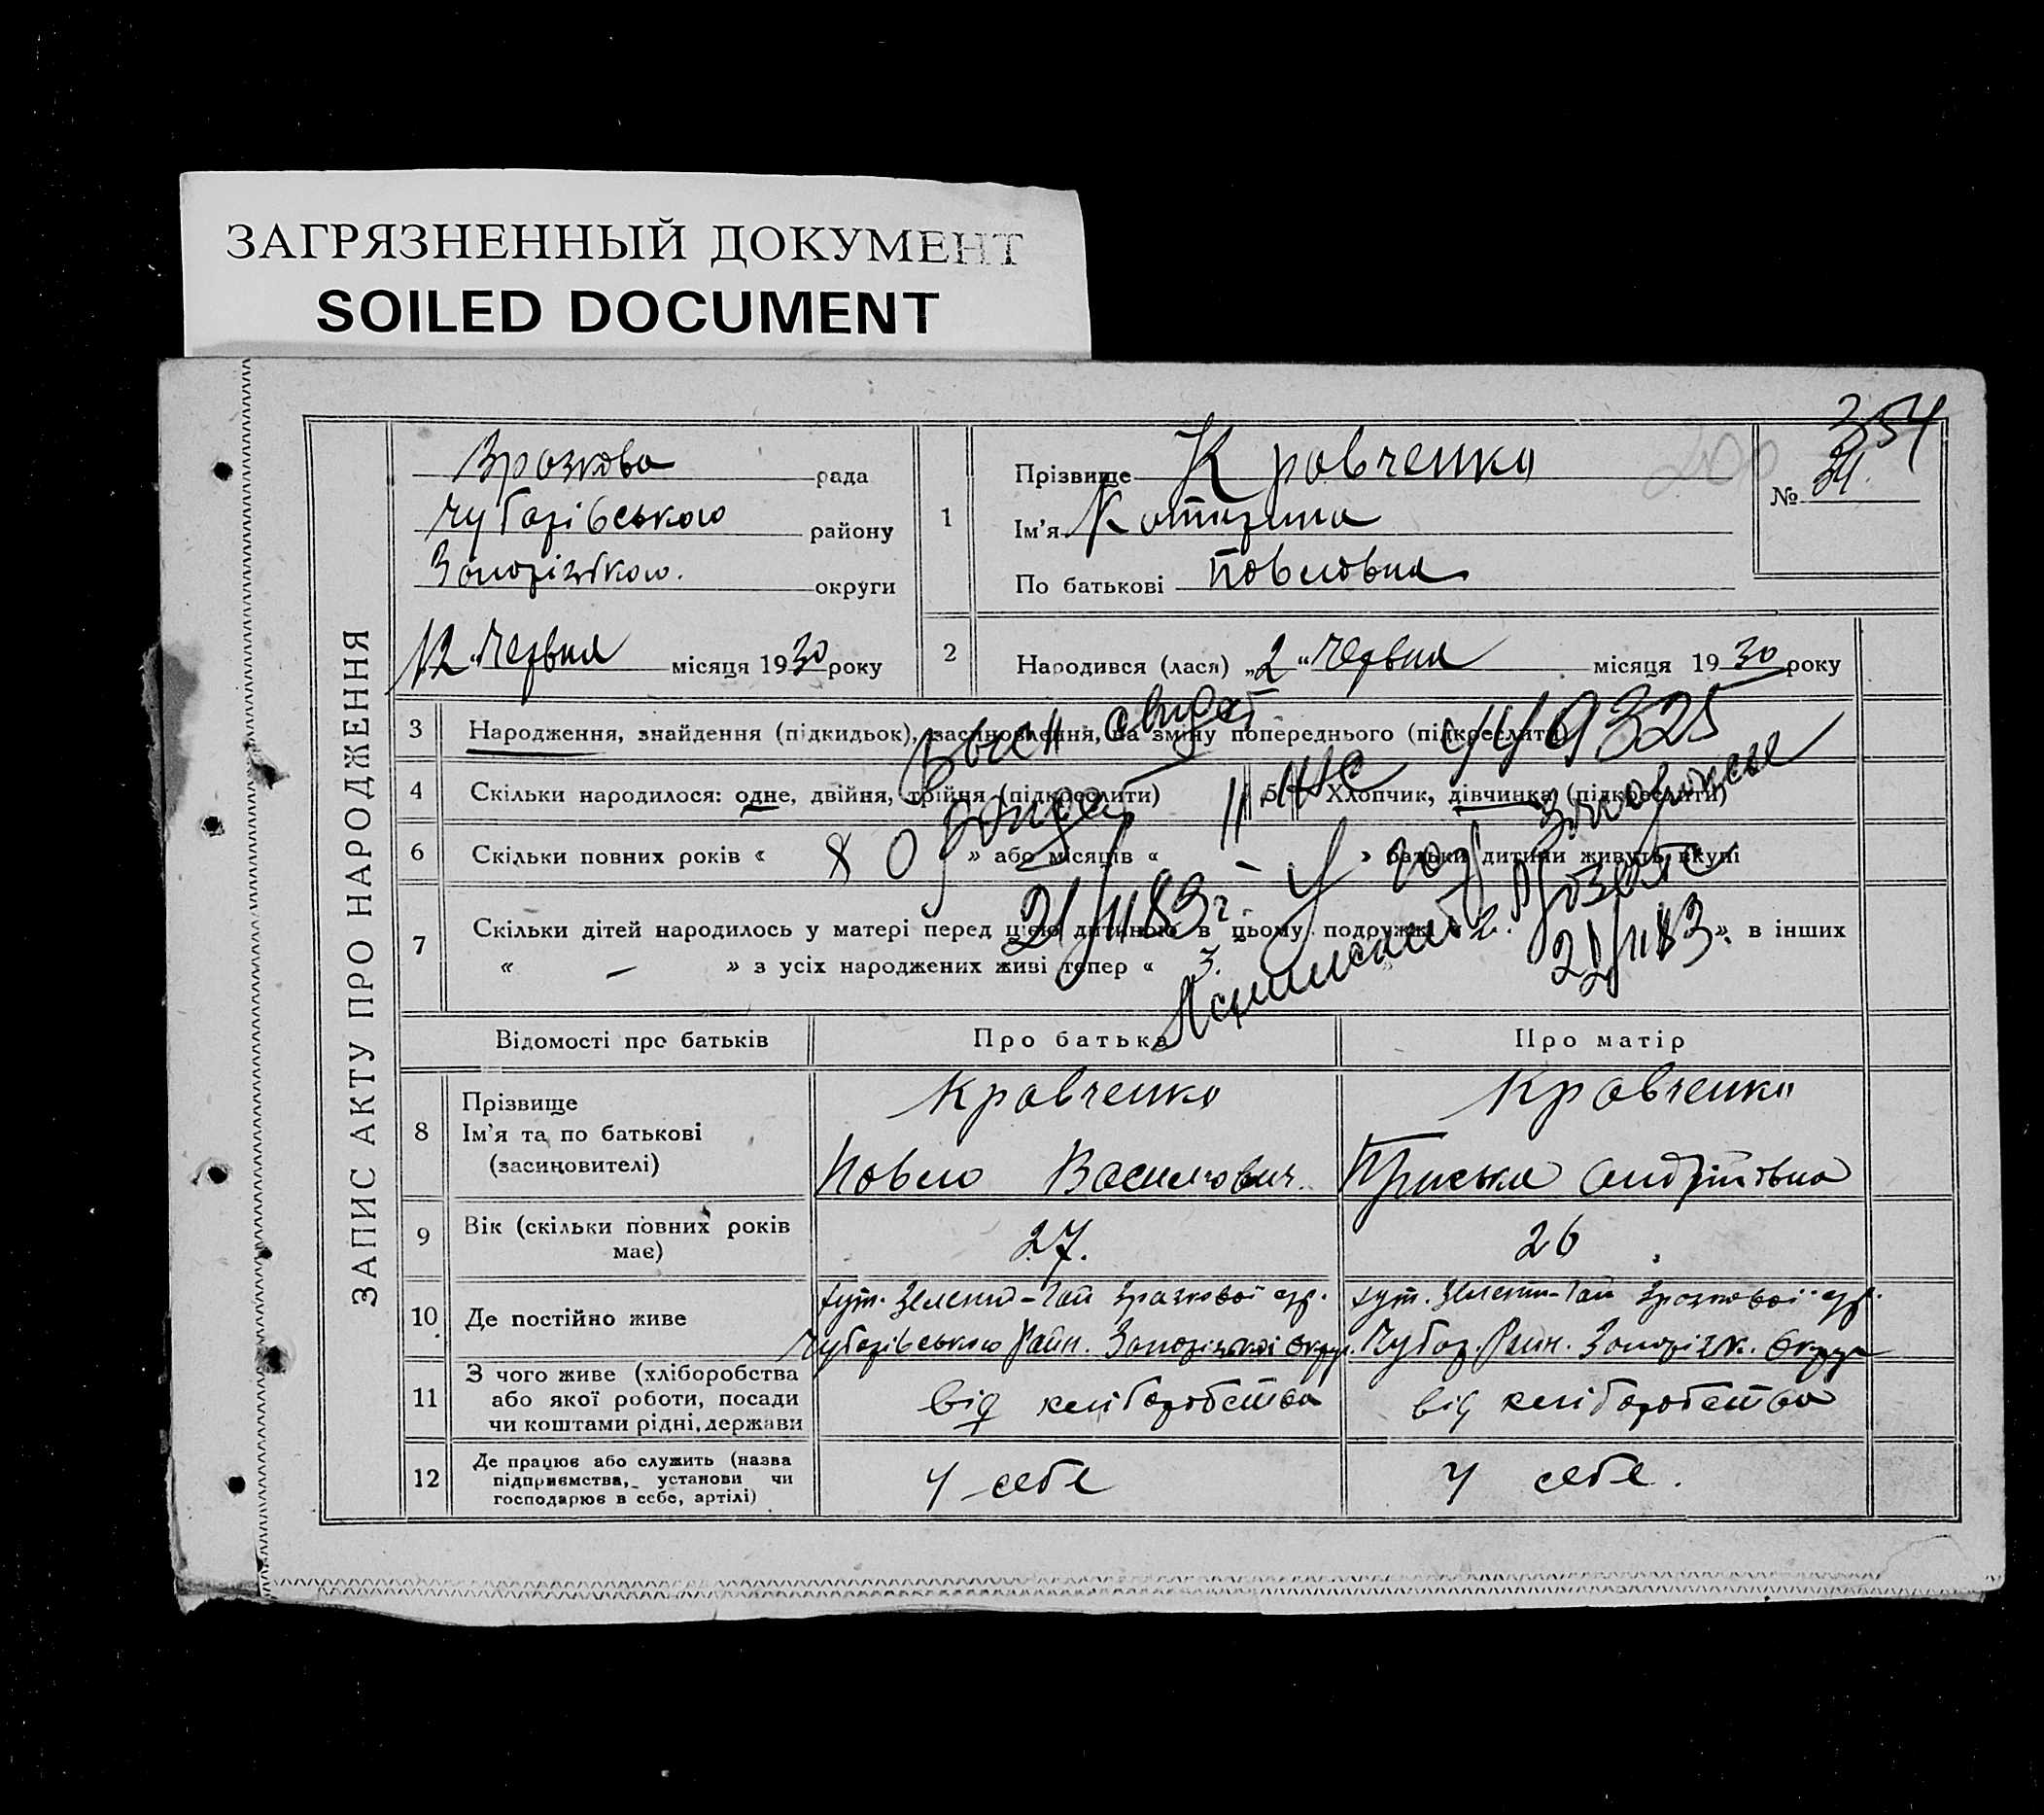 ЗАГРЯЗНЕННЫЙ ДОКУМЕНТ
SOILED DOCUMENT
354
200
№ 34.
ЗАПИС АКТУ ПРО НАРОДЖЕННЯ
Зразкова рада
Чубарівського району
Запорізького. округи
12 червня місяця 1930 року
1
Прізвище Кравченко
Ім'я Катерина
По батькові Павловна
2 Народився (лася) „2“ червня місяця 1930 року
3 Народження, знайдення (підкидьок), засиновлення, на зміну попереднього (підкреслити)
4 Скільки народилося: одне, двійня, трійня (підкреслити) 5 Хлопчик, дівчинка (підкреслити)
6 Скільки повних років « 8 » або місяців « - » батьки дитини живуть вкупі
7 Скільки дітей народилось у матері перед цією дитиною в цьому подружжі » в інших
« — » з усіх народжених живі тепер « 3.
о
449325
21/II 83г.
22/II 83г.
Відомості про батьків Про батька Про матір
8 Прізвище
Ім'я та по батькові
(засиновителі)
Кравченко
Павло Василович.
Кравченко
Приська Андріївна
9 Вік (скільки повних років має) 27. 26
10 Де постійно живе
хут. Зелений-Гай Зразкової с/р.
Чубарівського Райн. Запорізької Округ.
хут. Зелений-Гай Зразкової с/р.
Чубар. Райн. Запоріжк. Округи
11 З чого живе (хліборобства
або якої роботи, посади
чи коштами рідні, держави
від хліборобства
від хліборобства
12 Де працює або служить (назва
підприємства, установи чи
господарює в себе, артілі)
У себе
У себе.